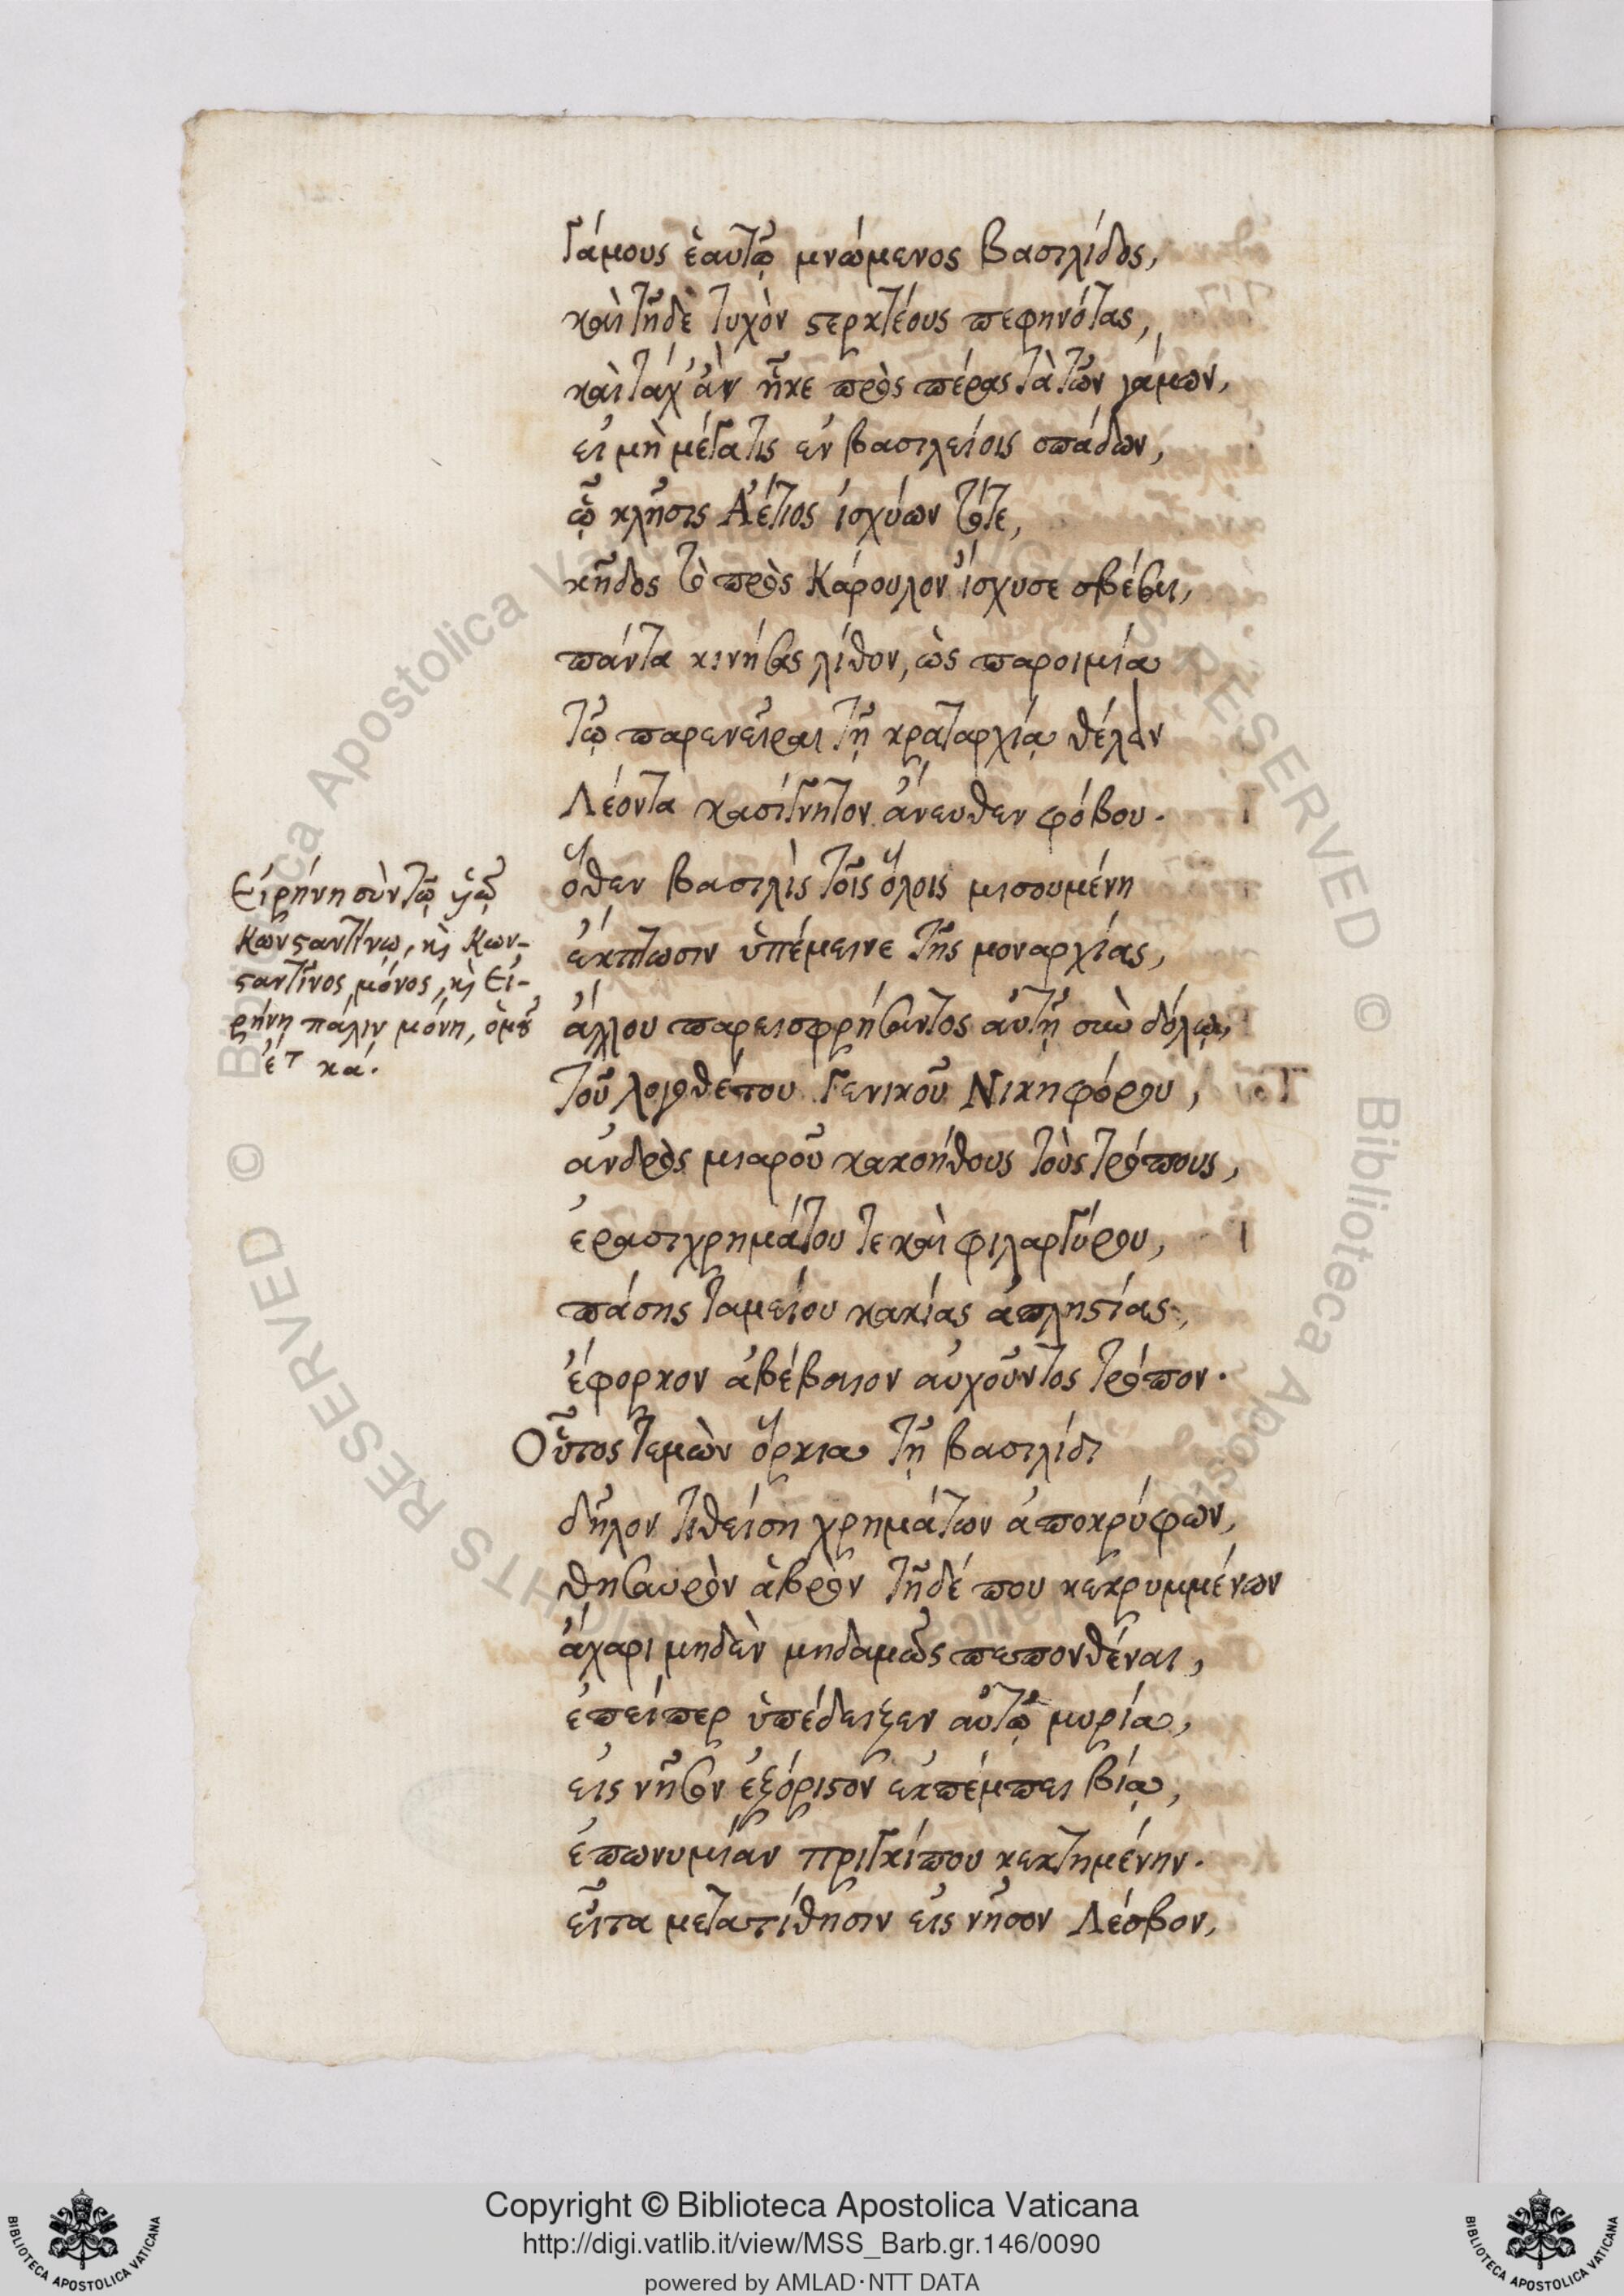 Γάμους ἑαυτῷ μνώμενος Βασιλίδος,
καὶ τῇδε τυχὸν στερκτέους πεφηνότας,
καὶ τάχ' ἂν ἧκε πρὸς πέρας τὰ τῶν γάμων,
εἰ μὴ μέγας τις ἐν βασιλείοις σπάδων,
ᾧ κλῆσις Ἀέτιος ἰσχύων τότε,
κῆδος τὸ πρὸς Κάρουλον ἴσχυσε σβέσαι,
πάντα κινήσας λίθον, ὡς παροιμία
τῷ παρενεῖραι τῇ κραταρχίᾳ θέλειν
Λέοντα κασίγνητον ἄνευθεν φόβου.
ὅθεν βασιλὶς τοῖς ὅλοις μισουμένη
ἔκπτωσιν ὑπέμεινε τῆς μοναρχίας,
ἄλλου παρεισφρήσαντος αὐτῇ σὺν δόλῳ,
τοῦ λογοθέτου Γενικοῦ Νικηφόρου,
ἀνδρὸς μιαροῦ κακοήθους τοὺς τρόπους,
ἐρασιχρημάτου τε καὶ φιλαργύρου,
πάσης ταμείου κακίας ἀπληστίας,
ἐφορκον ἀβέβαιον αὐχοῦντος τρόπον.
Οὗτος τεμὼν ὅρκια τῇ βασιλίδι
δῆλον τιθείσῃ χρημάτων ἀποκρύφων,
θησαυρὸν ἁβρὸν τῇδέ που κεκρυμμένων
ἄχαρι μηδὲν μηδαμῶς πεπονθέναι,
ἐπείπερ ὑπέδειξεν αὐτῷ μυρία,
εἰς νῆσον ἐξόριστον ἐκπέμπει βίᾳ,
ἐπωνυμίαν πριγκίπου κεκτημένην.
εἶτα μετατίθησιν εἰς νῆσον Λέσβον,
Εἰρήνη σὺν τῷ υἱῷ
Κωνσταντίνῳ, κὶ Κων-
σταντῖνος μόνος, κὶ Εἰ-
ρήνη πάλιν μόνη, ὁμοῦ
ἔτ κά.
Copyright © Biblioteca Apostolica Vaticana
http://digi.vatlib.it/view/MSS_Barb.gr.146/0090
powered by AMLAD·NTT DATA